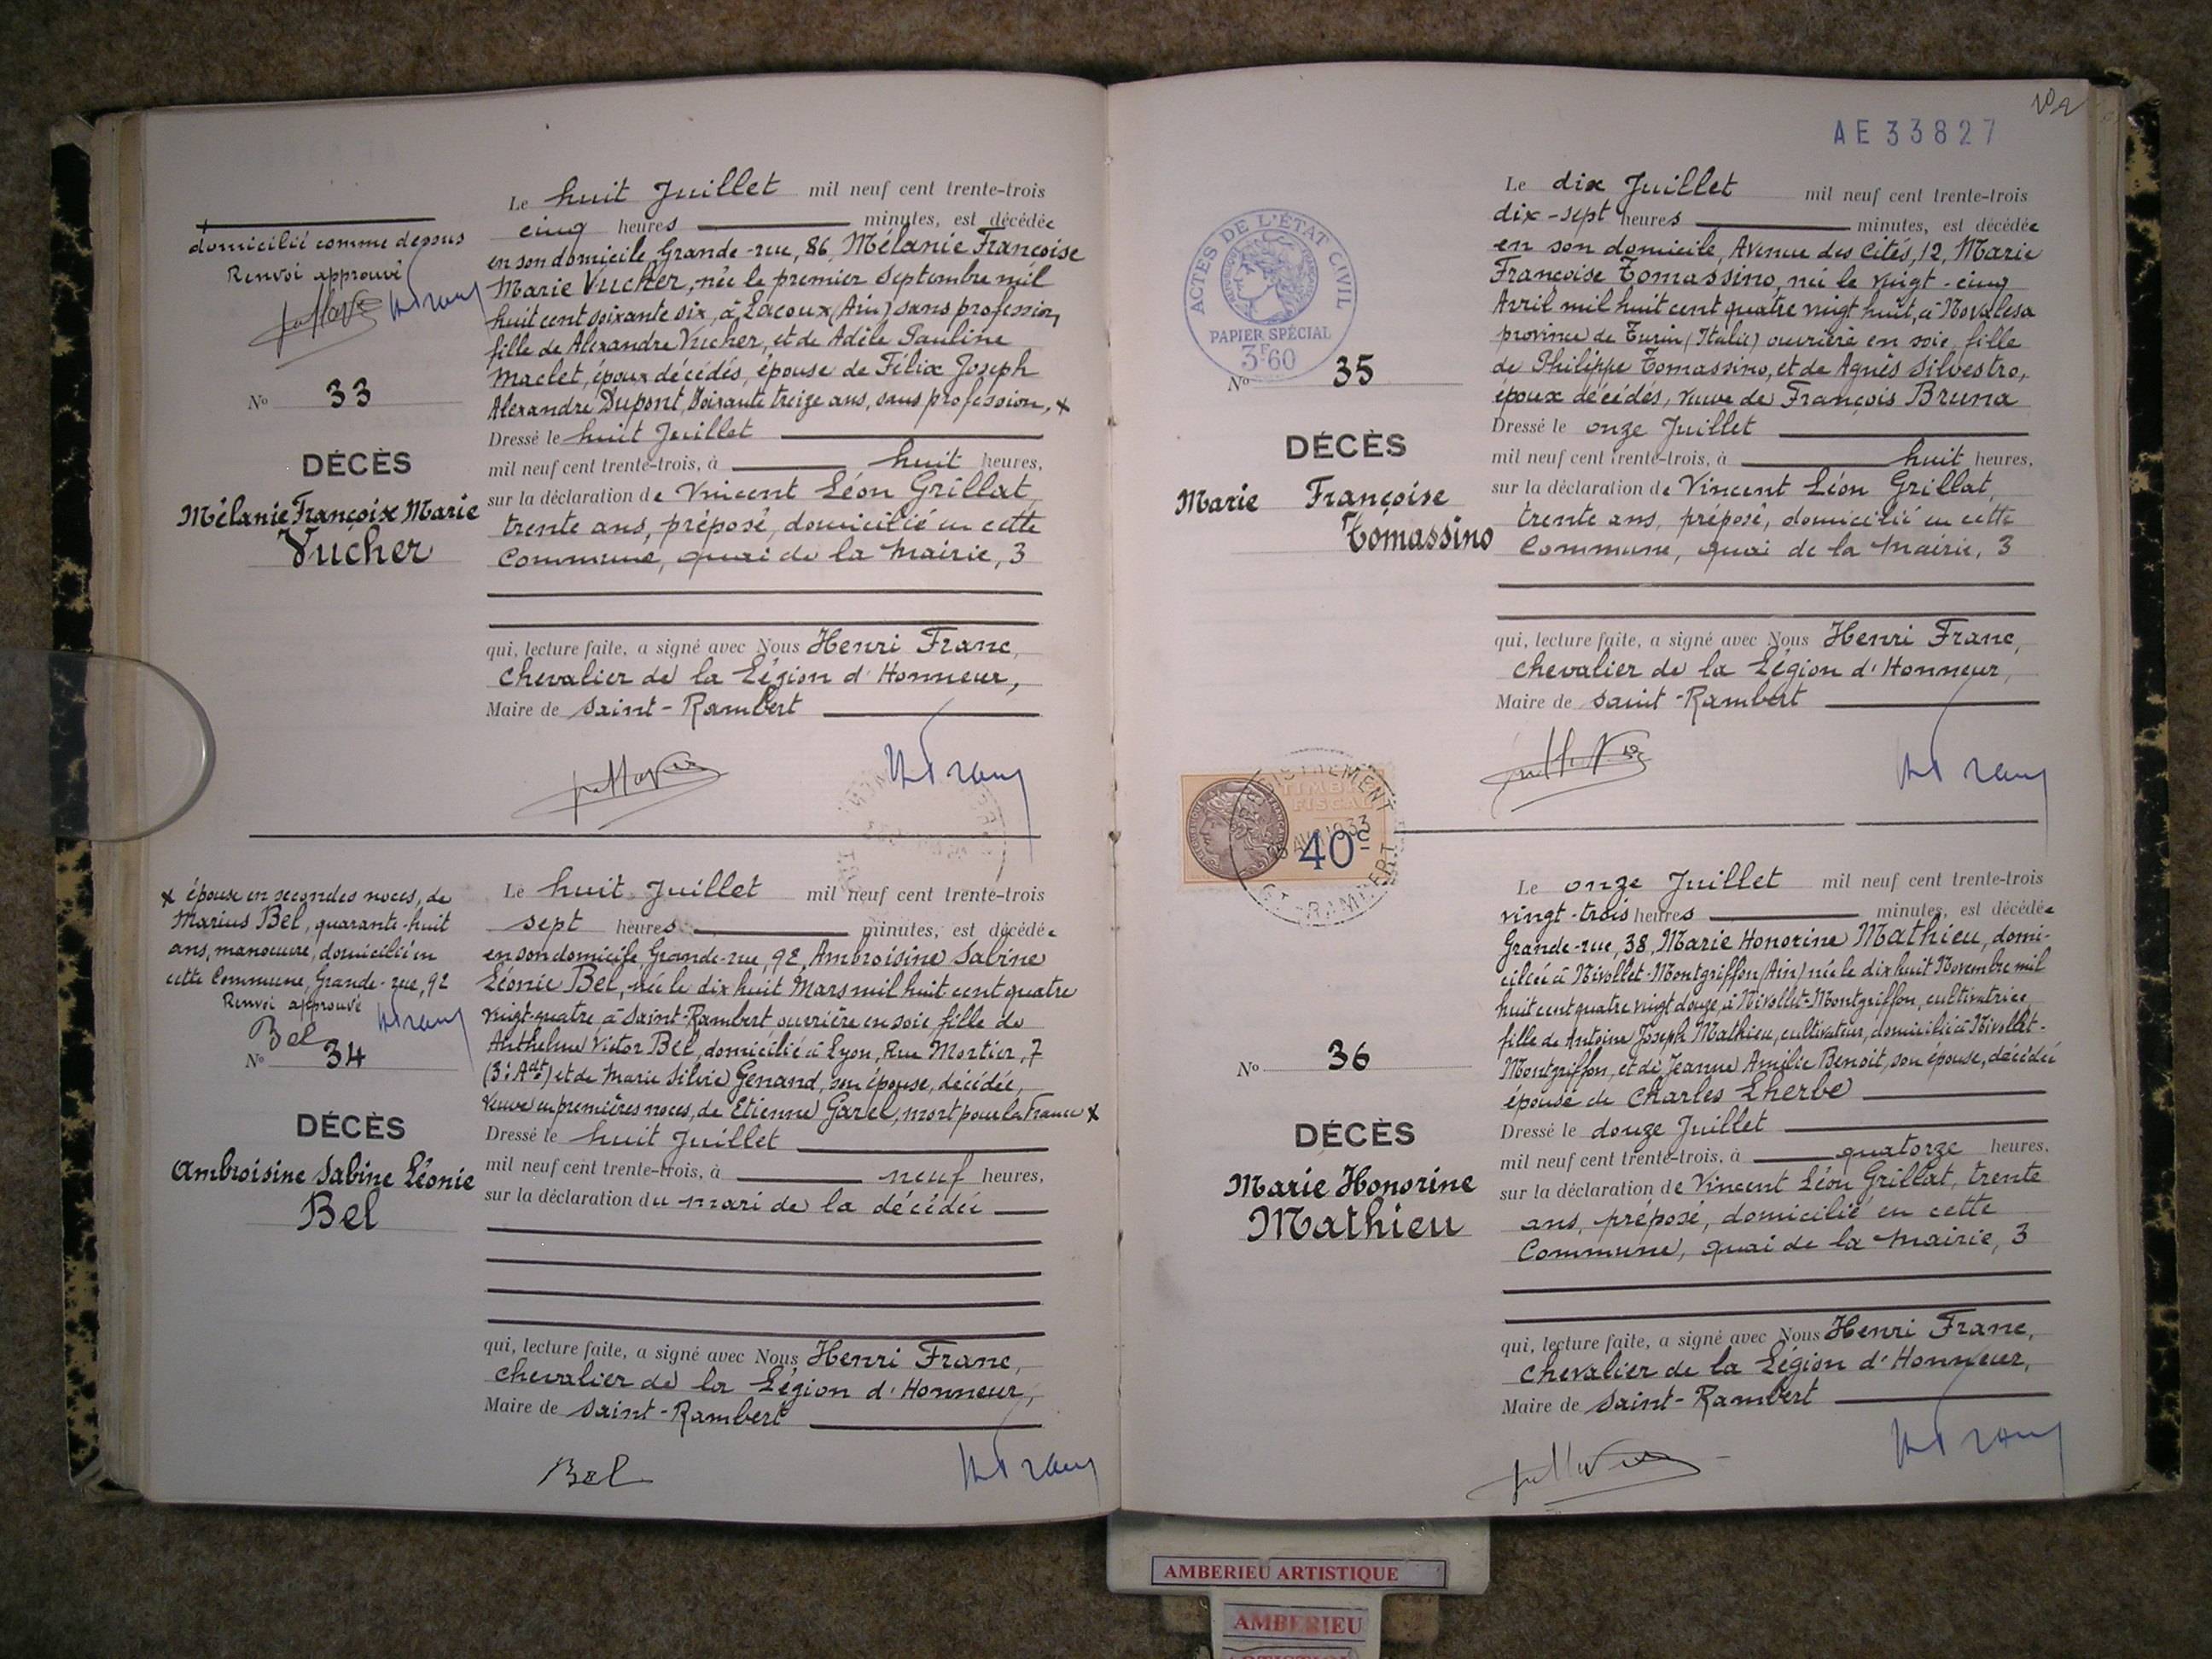 domicilié comme dessus
Renvoi approuvé
No 33
DÉCÈS
Mélanie Françoise Marie
Vucher
Le huit Juillet mil neuf cent trente-trois
cinq heures minutes, est décédée
en son domicile, Grande-rue, 86, Mélanie Françoise
Marie Vucher, née le premier Septembre mil
huit cent soixante six, à Lacoux (Ain) sans profession,
fille de Alexandre Vucher, et de Adèle Pauline
Maclet, époux décédés, épouse de Félix Joseph
Alexandre Dupont, soixante treize ans, sans profession, x
Dressé le huit Juillet
mil neuf cent trente-trois, à huit heures,
sur la déclaration de Vincent Léon Grillat,
trente ans, préposé, domicilié en cette
Commune, quai de la Mairie, 3
qui, lecture faite, a signé avec Nous Henri Franc,
Chevalier de la Légion d'Honneur,
Maire de Saint-Rambert
x épouse en secondes noces, de
Marius Bel, quarante-huit
ans, manœuvre, domicilié en
cette Commune, Grande-rue, 92
Renvoi approuvé
Bel
No 34
DÉCÈS
Ambroisine Sabine Léonie
Bel
Le huit Juillet mil neuf cent trente-trois
sept heures minutes, est décédée
en son domicile, Grande-rue, 92, Ambroisine Sabine
Léonie Bel, née le dix huit Mars mil huit cent quatre
vingt-quatre, à Saint-Rambert, ouvrière en soie, fille de
Anthelme Victor Bel, domicilié à Lyon, Rue Mortier, 7
(3e Adt) et de Marie Silvie Genand, son épouse, décédée,
Veuve en premières noces, de Etienne Garel, mort pour la France x
Dressé le huit Juillet
mil neuf cent trente-trois, à neuf heures,
sur la déclaration du mari de la décédée
qui, lecture faite, a signé avec Nous Henri Franc,
Chevalier de la Légion d'Honneur,
Maire de Saint-Rambert
Bel
AE 33827
ACTES DE L'ÉTAT CIVIL
PAPIER SPÉCIAL
3F60
No 35
DÉCÈS
Marie Françoise
Tomassino
Le dix Juillet mil neuf cent trente-trois
dix-sept heures minutes, est décédée
en son domicile, Avenue des Cités, 12, Marie
Françoise Tomassino, née le vingt-cinq
Avril mil huit cent quatre vingt huit, à Novalesa
province de Turin (Italie) ouvrière en soie, fille
de Philippe Tomassino, et de Agnès Silvestro,
époux décédés, veuve de François Bruna
Dressé le onze Juillet
mil neuf cent trente-trois, à huit heures,
sur la déclaration de Vincent Léon Grillat,
trente ans, préposé, domicilié en cette
Commune, quai de la Mairie, 3
qui, lecture faite, a signé avec Nous Henri Franc,
Chevalier de la Légion d'Honneur,
Maire de Saint-Rambert
TIMBRE
FISCAL
40c
1933
No 36
DÉCÈS
Marie Honorine
Mathieu
Le onze Juillet mil neuf cent trente-trois
vingt-trois heures minutes, est décédée
Grande-rue, 38, Marie Honorine Mathieu, domi-
ciliée à Nivollet-Montgriffon (Ain) née le dix huit Novembre mil
huit cent quatre vingt douze, à Nivollet-Montgriffon, cultivatrice,
fille de Antoine Joseph Mathieu, cultivateur, domicilié à Nivollet-
Montgriffon, et de Jeanne Amélie Benoit, son épouse, décédée
épouse de Charles Lherbe
Dressé le douze Juillet
mil neuf cent trente-trois, à quatorze heures,
sur la déclaration de Vincent Léon Grillat, trente
ans, préposé, domicilié en cette
Commune, quai de la Mairie, 3
qui, lecture faite, a signé avec Nous Henri Franc,
Chevalier de la Légion d'Honneur,
Maire de Saint-Rambert
AMBERIEU ARTISTIQUE
AMBERIEU